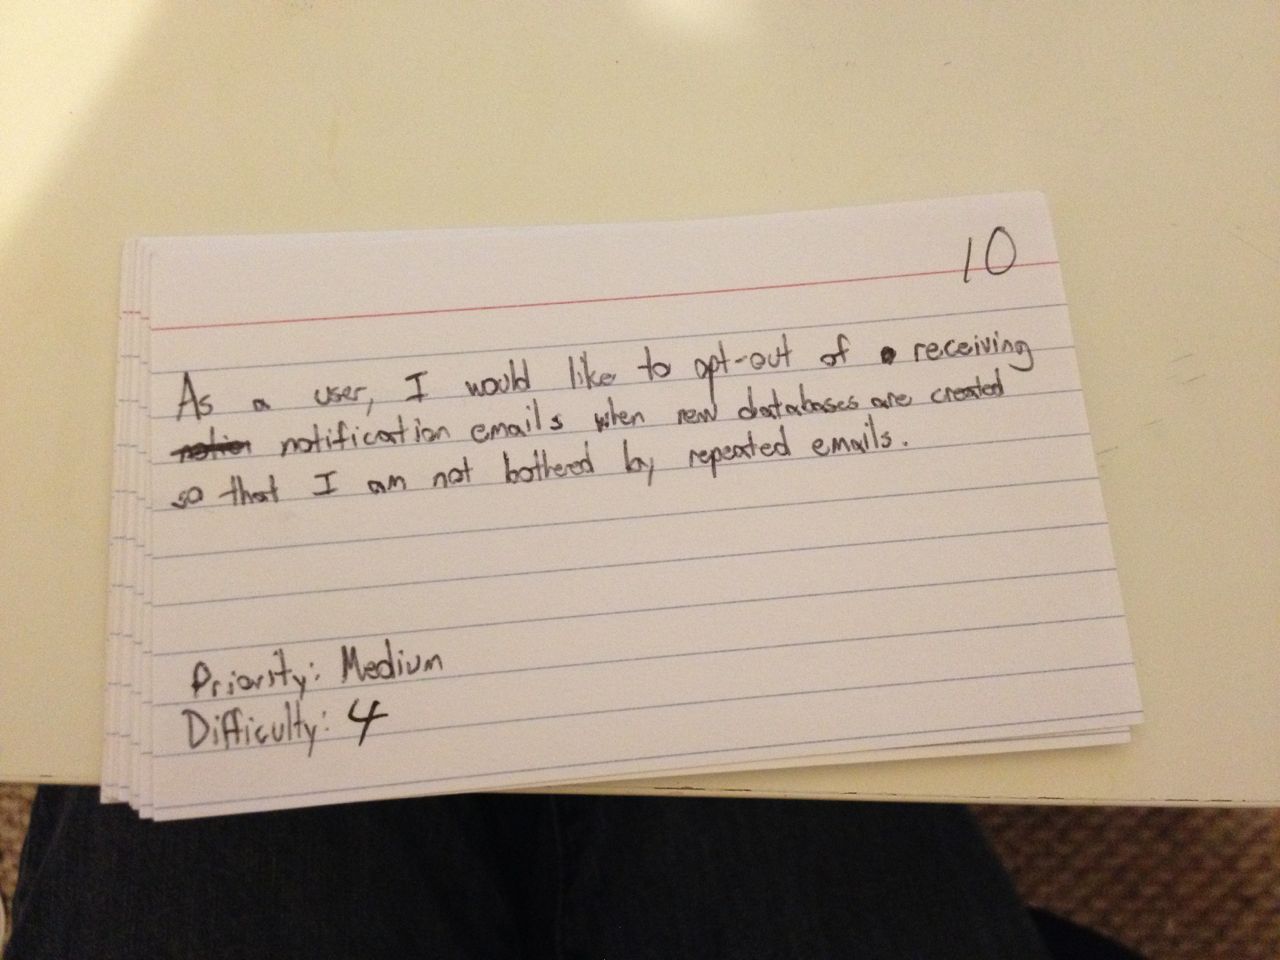 10
As a user, I would like to opt-out of receiving
notification emails when new databases are created
so that I am not bothered by repeated emails.
Priority: Medium
Difficulty: 4